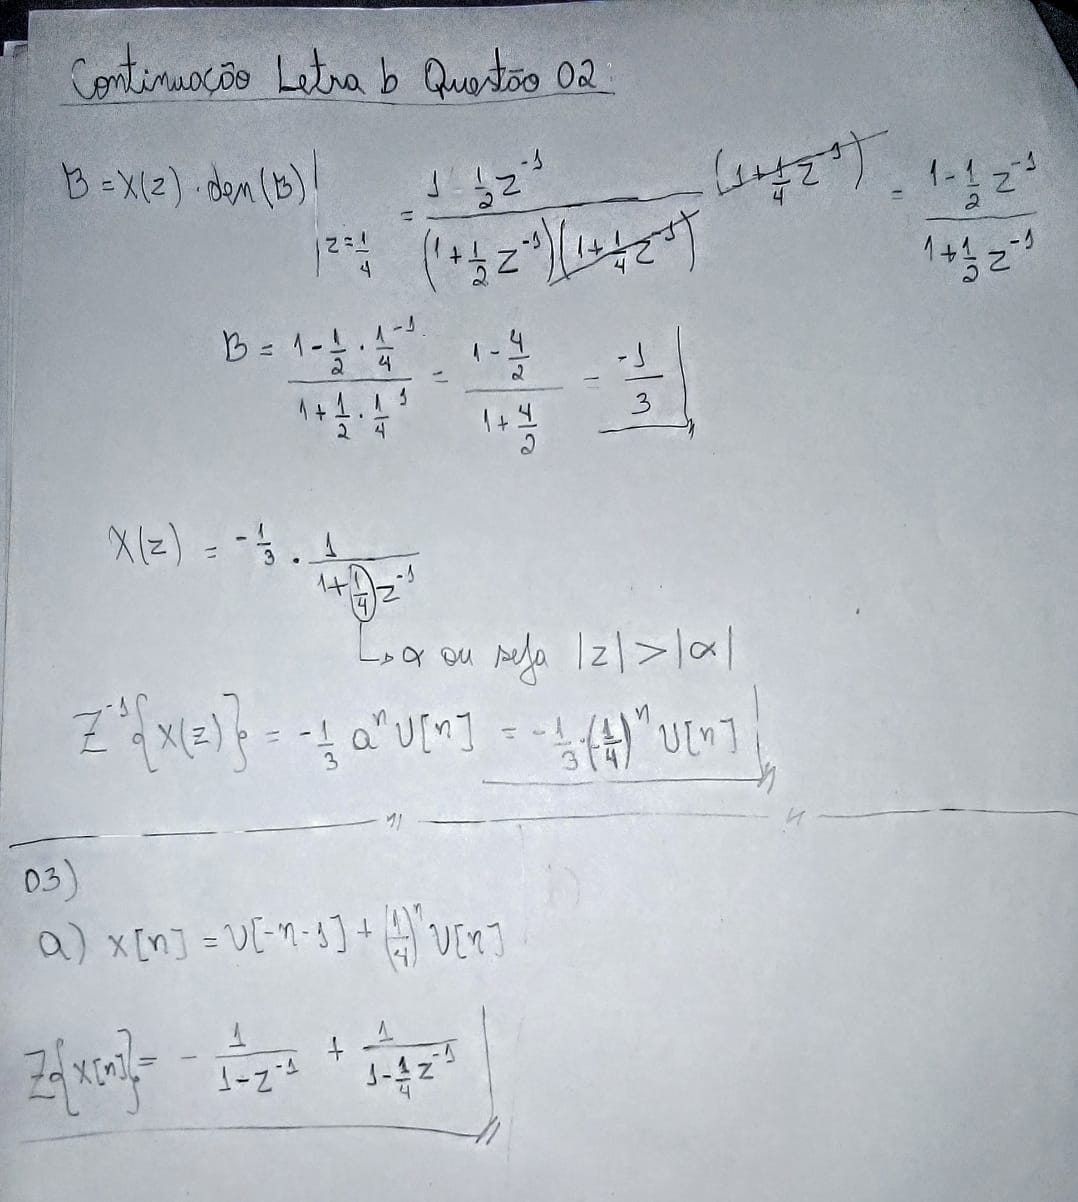 Continuação Letra b Questão 02:
B = X(z) . den(B) |z=1/4 = (1 - 1/2 z^-1) / ((1 + 1/2 z^-1)(1 + 1/4 z^-1)) (1 + 1/4 z^-1) = (1 - 1/2 z^-1) / (1 + 1/2 z^-1)
B = (1 - 1/2 . 1/4^-1) / (1 + 1/2 . 1/4^1) = (1 - 4/2) / (1 + 4/2) = -1/3
X(z) = -1/3 . 1 / (1 + 1/4 z^-1)
↳ α ou seja |z| > |α|
Z^-1{X(z)} = -1/3 a^n U[n] = -1/3 . (-1/4)^n U[n]
03)
a) x[n] = U[-n-1] + (1/4)^n U[n]
Z{x[n]} = - 1 / (1 - z^-1) + 1 / (1 - 1/4 z^-1)